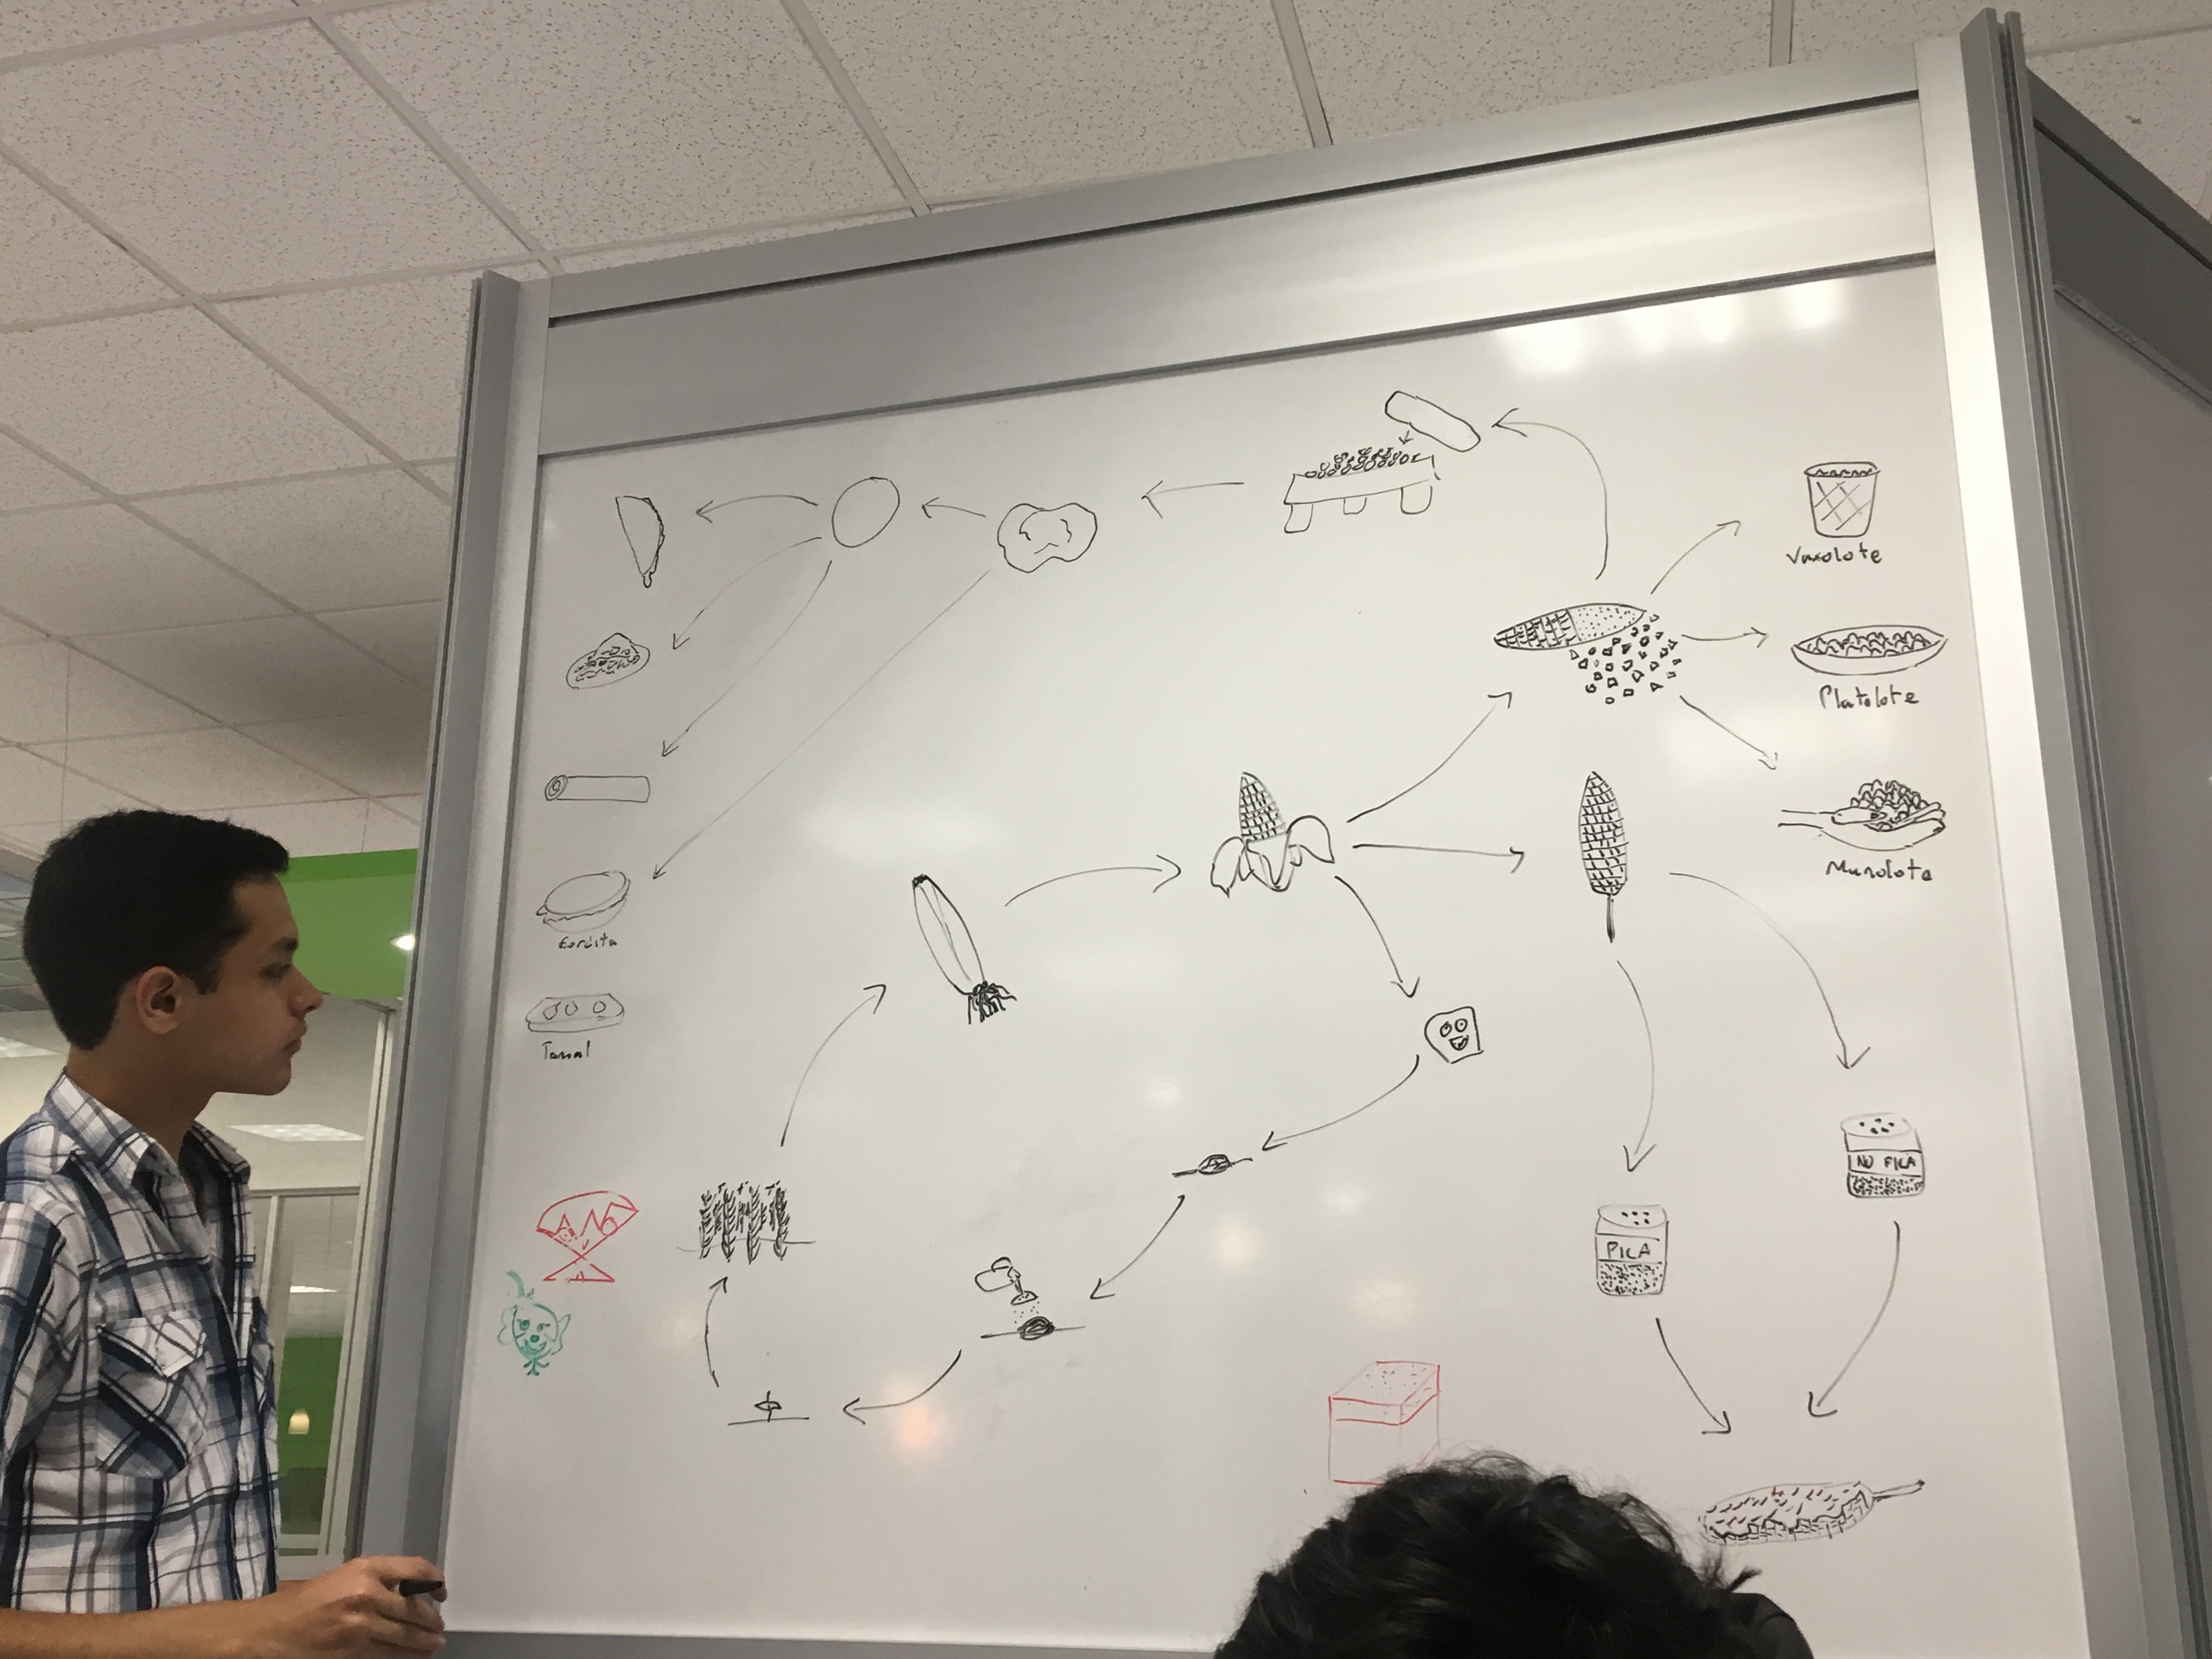 Vasolote
Platolote
Manolote
Gordita
Tamal
NO PICA
PICA